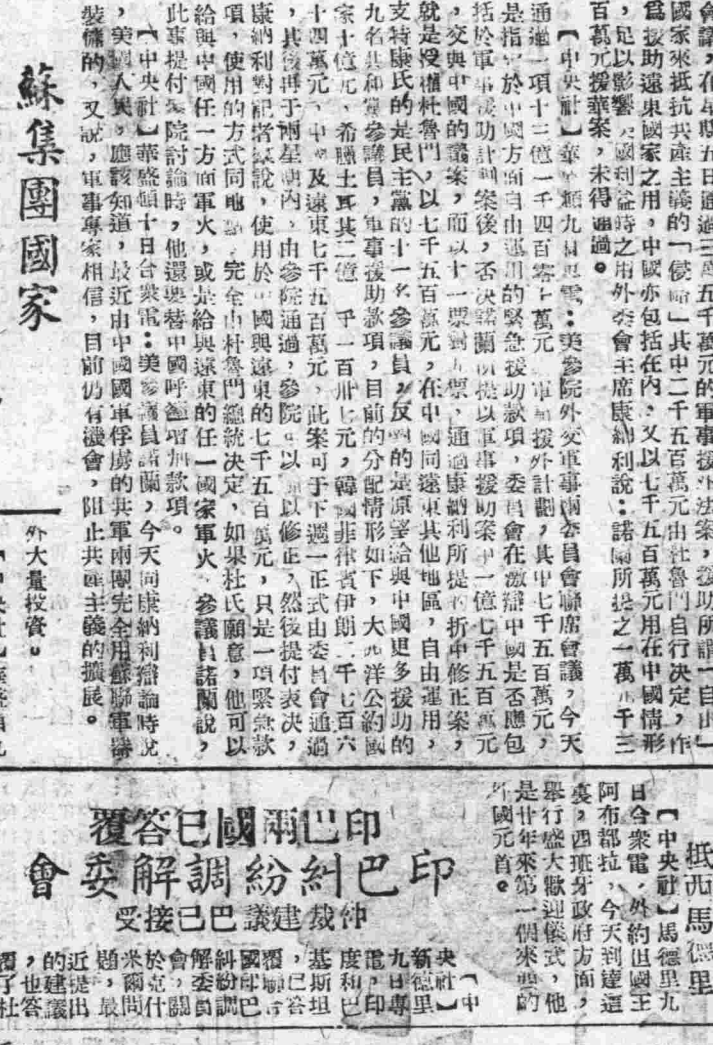 會議,在星期五日通過三萬五千萬元的軍事援外法案,援助所謂「自由」
國家來抵抗共產主義的「侵略」其中二千五百萬元由杜魯門自行決定,作
爲援助遠東國家之用,中國亦包括在內,又以七千五百萬元用在中國情形
,足以影響美國利益時之用外委會主席康納利說:諾蘭所提之一萬 千三
百萬元援華案,未得通過。
【中央社】華 頓九日 電:美參院外交軍事兩委員會聯席會議,今天
通過一項十三億一千四百零 萬元 軍 援外計劃,其中七千五百萬元,
是指 於中國方面自由運用的緊急援助款項,委員會在激辯中國是否應包
括於軍事援助計劃案後,否決諾蘭所提以軍事援助案中一億七千五百萬元
,交與中國的議案,而以十一票對 票,通過康納利所提的折中修正案,
就是授權杜魯門,以七千五百萬元,在中國同遠東其他地區,自由運用,
支持康氏的是民主黨的十一名參議員,反對的是原望給與中國更多援助的
九名共和黨參議員,軍事援助款項,目前的分配情形如下,大西洋公約國
家十億元,希臘土耳其二億 千一百卅七元,韓國菲律賓伊朗二千七百六
十四萬元,中國及遠東七千五百萬元,此案可于下週一正式由委員會通過
,其後再于兩星期內,由參院通過,參院可以 以修正,然後提付表決,
康納利對記者談說,使用於中國與遠東的七千五百萬元,只是一項緊急款
項,使用的方式同地點,完全由杜魯門總統決定,如果杜氏願意,他可以
給與中國任一方面軍火,或是給與遠東的任一國家軍火,參議員諾蘭說,
此事提付參院討論時,他還要替中國呼籲增加款項。
【中央社】華盛頓十日合衆電:美參議員諾蘭,今天向康納利辯論時說
,美國人民,應該知道,最近由中國國軍俘虜的共軍兩團完全用蘇聯軍器
裝備的,又說,軍事專家相信,目前仍有機會,阻止共產主義的擴展。
蘇集團國家
外大量投資。
抵西馬德里
【中央社】馬德里九
日合衆電,外約但國王
阿布都拉,今天到達這
裏,西班牙政府方面,
舉行盛大歡迎儀式,他
是廿年來第一個來 的
外國元首。
印巴兩國已答覆
印巴糾紛調解委會
仲裁建議巴已接受
【中
央社】
新德里
九日專
電,印
度和巴
基斯坦
,已答
覆聯合
國印巴
糾紛調
解委員
會,關
於克什
米爾問
題,最
近提出
的建議
,也答
覆了杜